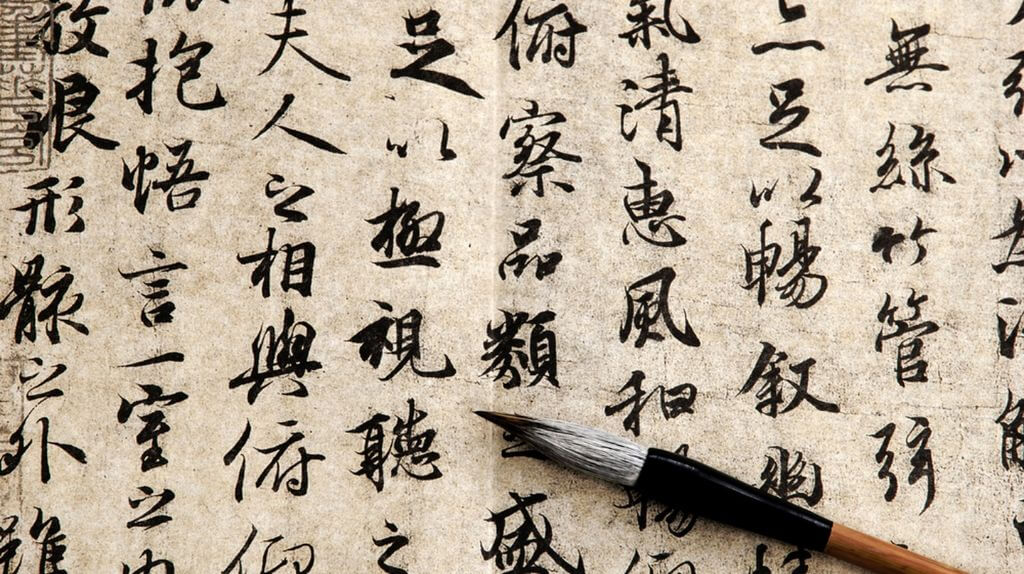 無絲竹管弦
亦足以暢叙幽
氣清惠風和暢
俯察品類之盛
足以極視聽之
夫人之相與俯仰
抱悟言一室之內
放浪形骸之外雖